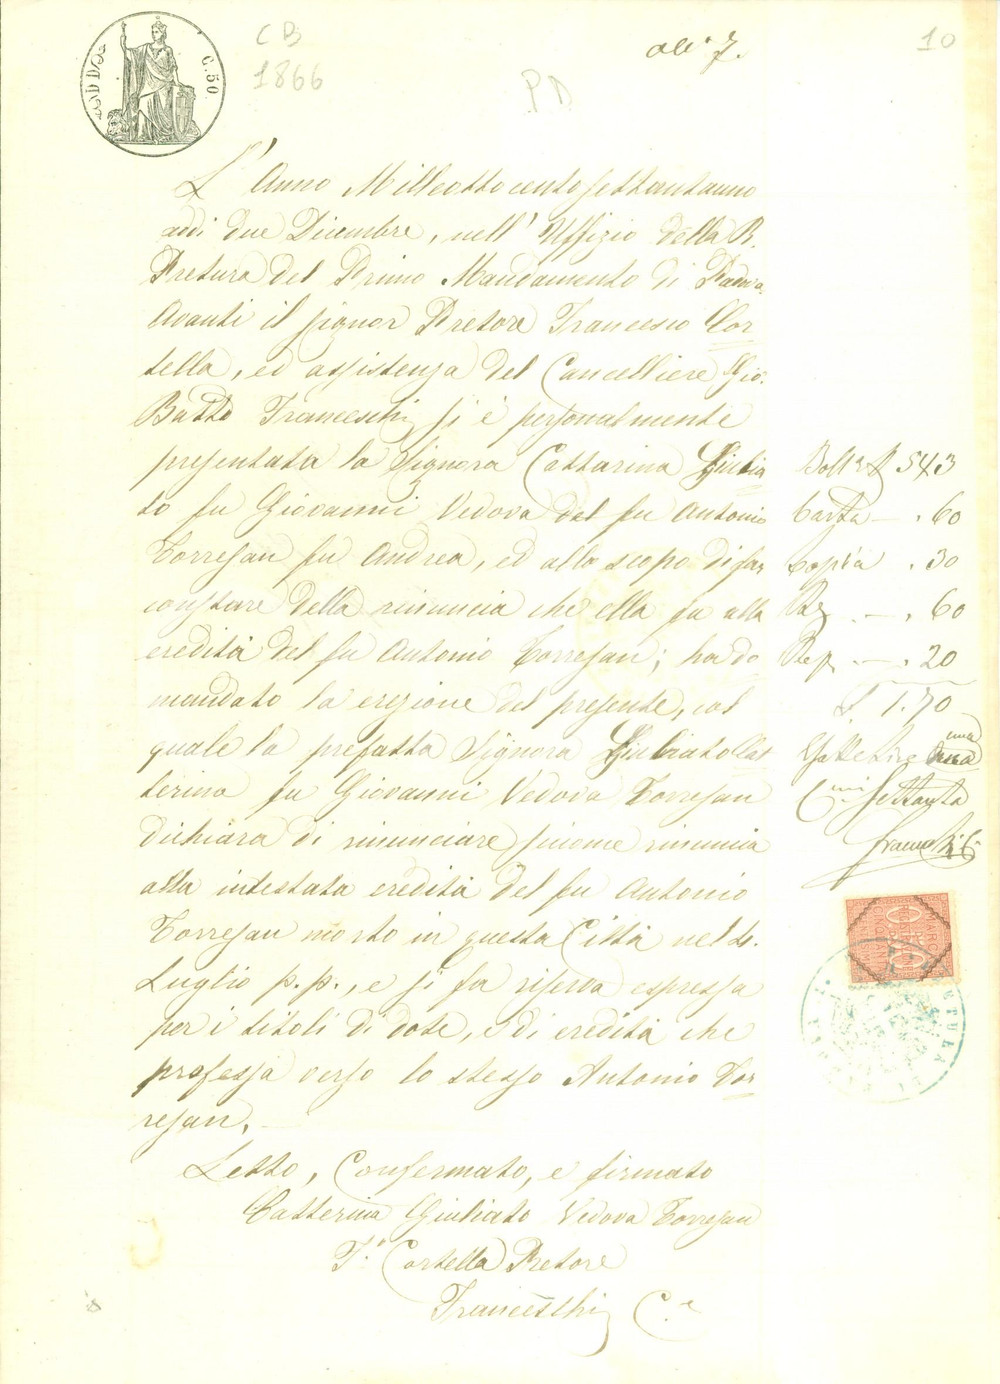 C. 50
CB
1866
PD
all° 7.
10
L'Anno Milleottocentosettantanno
addi due Dicembre, nell'Uffizio della R.
Pretura del Primo Mandamento di Padva.
Avanti il signor Pretore Francesco Cor
tella, ed assistenza del Cancelliere Gio.
Batta Franceschi si è personalmente
presentata la Signora Cattarina Giulia
to fu Giovanni Vedova del fu Antonio
Torresan fu Andrea, ed allo scopo di far
constare della rinuncia che ella fa alla
eredità del fu Antonio Torresan; ha do
mandato la erezione del presente, col
quale la prefatta Signora Giuliato Cat
terina fu Giovanni Vedova Torresan
dichiara di rinunciare siccome rinuncia
alla intestata eredità del fu Antonio
Torresan morto in questa Città nel
Luglio p.p., e si fa riserva espressa
per i titoli di dote, e di eredità che
professa verso lo stesso Antonio Tor
resan.
Letto, Confermato, e firmato
Catterina Giuliato Vedova Torresan
F.° Cortella Pretore
Franceschi C.e
543
Carta — . 60
Copia . 30
— . 60
Rep — . 20
£ 1.70
una
Settanta
Franceschi
MARCA